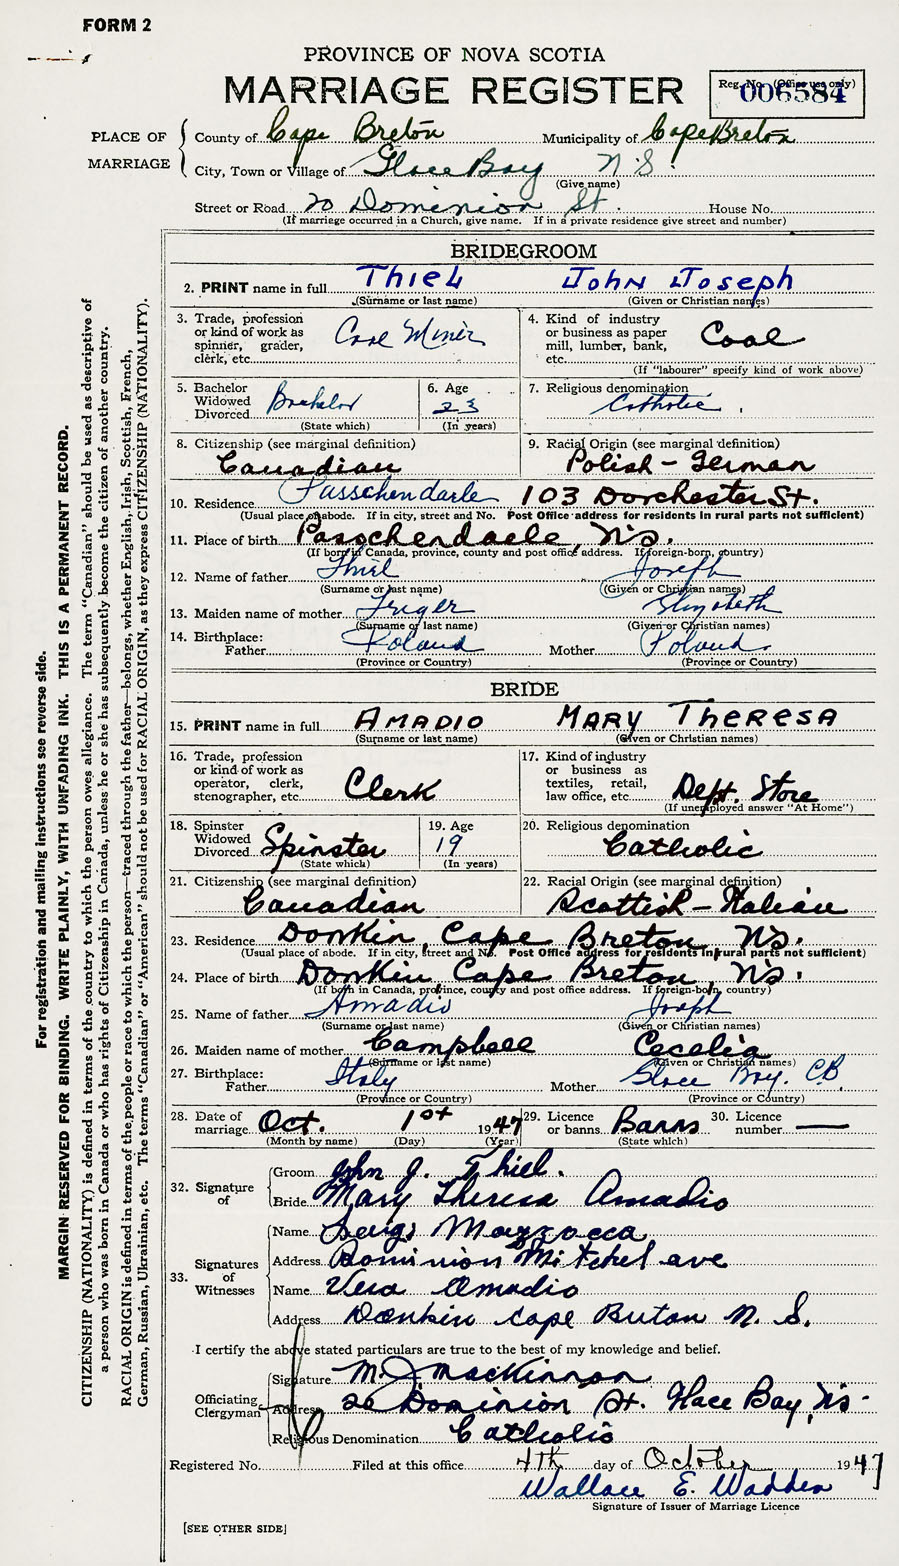 FORM 2
PROVINCE OF NOVA SCOTIA
MARRIAGE REGISTER
Reg. No. (Office use only)
006584
PLACE OF MARRIAGE
County of Cape Breton Municipality of Cape Breton
City, Town or Village of Glace Bay N.S.
(Give name)
Street or Road 20 Dominion St. House No.
(If marriage occurred in a Church, give name. If in a private residence give street and number)
BRIDEGROOM
2. PRINT name in full Thiel John Joseph
(Surname or last name) (Given or Christian names)
3. Trade, profession or kind of work as spinner, grader, clerk, etc. Coal Miner
4. Kind of industry or business as paper mill, lumber, bank, etc. Coal
(If "labourer" specify kind of work above)
5. Bachelor Widowed Divorced Bachelor
(State which)
6. Age 23
(In years)
7. Religious denomination Catholic
8. Citizenship (see marginal definition) Canadian
9. Racial Origin (see marginal definition) Polish-German
10. Residence Passchendaele 103 Dorchester St.
(Usual place of abode. If in city, street and No. Post Office address for residents in rural parts not sufficient)
11. Place of birth Passchendaele, N.S.
(If born in Canada, province, county and post office address. If foreign-born, country)
12. Name of father Thiel Joseph
(Surname or last name) (Given or Christian names)
13. Maiden name of mother Elizabeth
(Surname or last name) (Given or Christian names)
14. Birthplace: Father Poland Mother Poland
(Province or Country) (Province or Country)
BRIDE
15. PRINT name in full AMADIO MARY THERESA
(Surname or last name) (Given or Christian names)
16. Trade, profession or kind of work as operator, clerk, stenographer, etc. Clerk
17. Kind of industry or business as textiles, retail, law office, etc. Dept. Store
(If unemployed answer "At Home")
18. Spinster Widowed Divorced Spinster
(State which)
19. Age 19
(In years)
20. Religious denomination Catholic
21. Citizenship (see marginal definition) Canadian
22. Racial Origin (see marginal definition) Scottish-Italian
23. Residence Donkin, Cape Breton, N.S.
(Usual place of abode. If in city, street and No. Post Office address for residents in rural parts not sufficient)
24. Place of birth Donkin Cape Breton, N.S.
(If born in Canada, province, county and post office address. If foreign-born, country)
25. Name of father Amadio Joseph
(Surname or last name) (Given or Christian names)
26. Maiden name of mother Campbell Cecelia
(Surname or last name) (Given or Christian names)
27. Birthplace: Father Italy Mother Glace Bay. C.B.
(Province or Country) (Province or Country)
28. Date of marriage Oct. 1st 1947
(Month by name) (Day) (Year)
29. Licence or banns Banns
(State which)
30. Licence number —
32. Signature of
Groom John J. Thiel.
Bride Mary Theresa Amadio
33. Signatures of Witnesses
Name Luigi Mazzocca
Address Dominion Mitchel ave
Name Vera Amadio
Address Donkin Cape Breton N. S.
I certify the above stated particulars are true to the best of my knowledge and belief.
Officiating Clergyman
Signature M. J. MacKinnon
Address 20 Dominion St. Glace Bay, N.S.
Religious Denomination Catholic
Registered No. Filed at this office 4th day of October 1947
Wallace E. Wadden
Signature of Issuer of Marriage Licence
[SEE OTHER SIDE]
For registration and mailing instructions see reverse side.
MARGIN RESERVED FOR BINDING. WRITE PLAINLY, WITH UNFADING INK. THIS IS A PERMANENT RECORD.
CITIZENSHIP (NATIONALITY) is defined in terms of the country to which the person owes allegiance. The term "Canadian" should be used as descriptive of
a person who was born in Canada or who has rights of Citizenship in Canada, unless he or she has subsequently become the citizen of another country.
RACIAL ORIGIN is defined in terms of the people or race to which the person—traced through the father—belongs, whether English, Irish, Scottish, French,
German, Russian, Ukrainian, etc. The terms "Canadian" or "American" should not be used for RACIAL ORIGIN, as they express CITIZENSHIP (NATIONALITY).